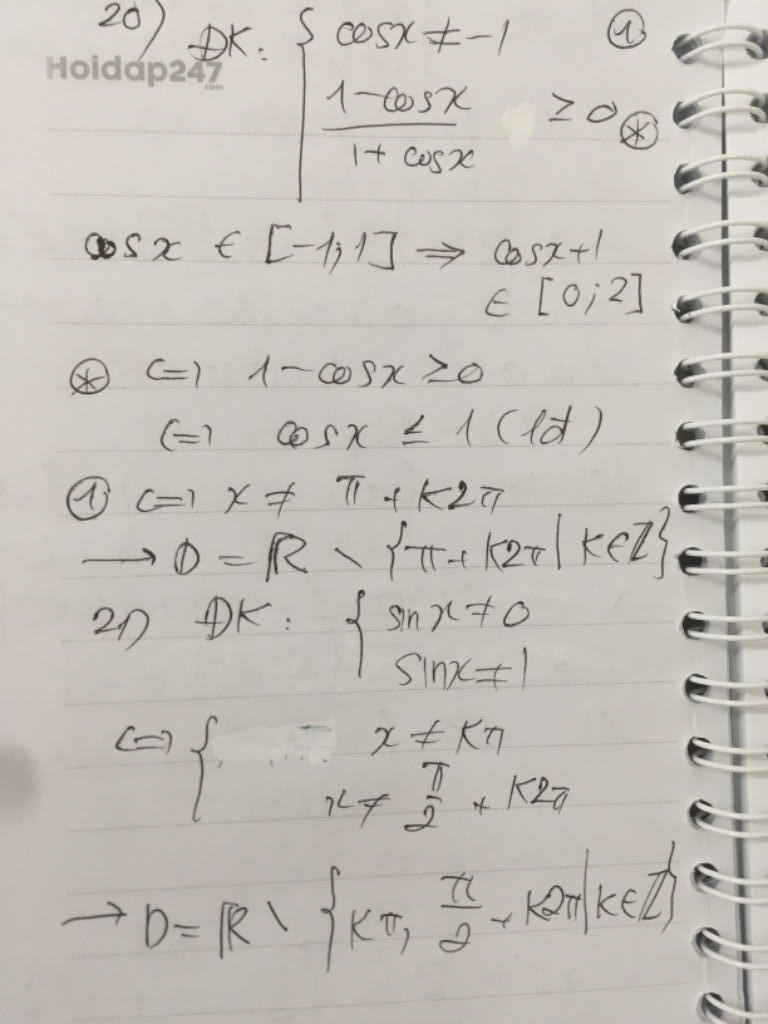 20) ĐK: { cosx ≠ -1 ①
Hoidap247
.com
1-cosx / 1+ cosx ≥ 0 ⊛
cosx ∈ [-1;1] ⇒ cosx+1
∈ [0;2]
⊛ (=) 1-cosx ≥ 0
(=) cosx ≤ 1 (lđ)
① (=) x ≠ π + K2π
→ D = ℝ \ {π + K2π | K∈ℤ}
21) ĐK: { sinx ≠ 0
sinx ≠ 1
(=) { x ≠ Kπ
x ≠ π/2 + K2π
→ D = ℝ \ {Kπ, π/2 + K2π | K∈ℤ}